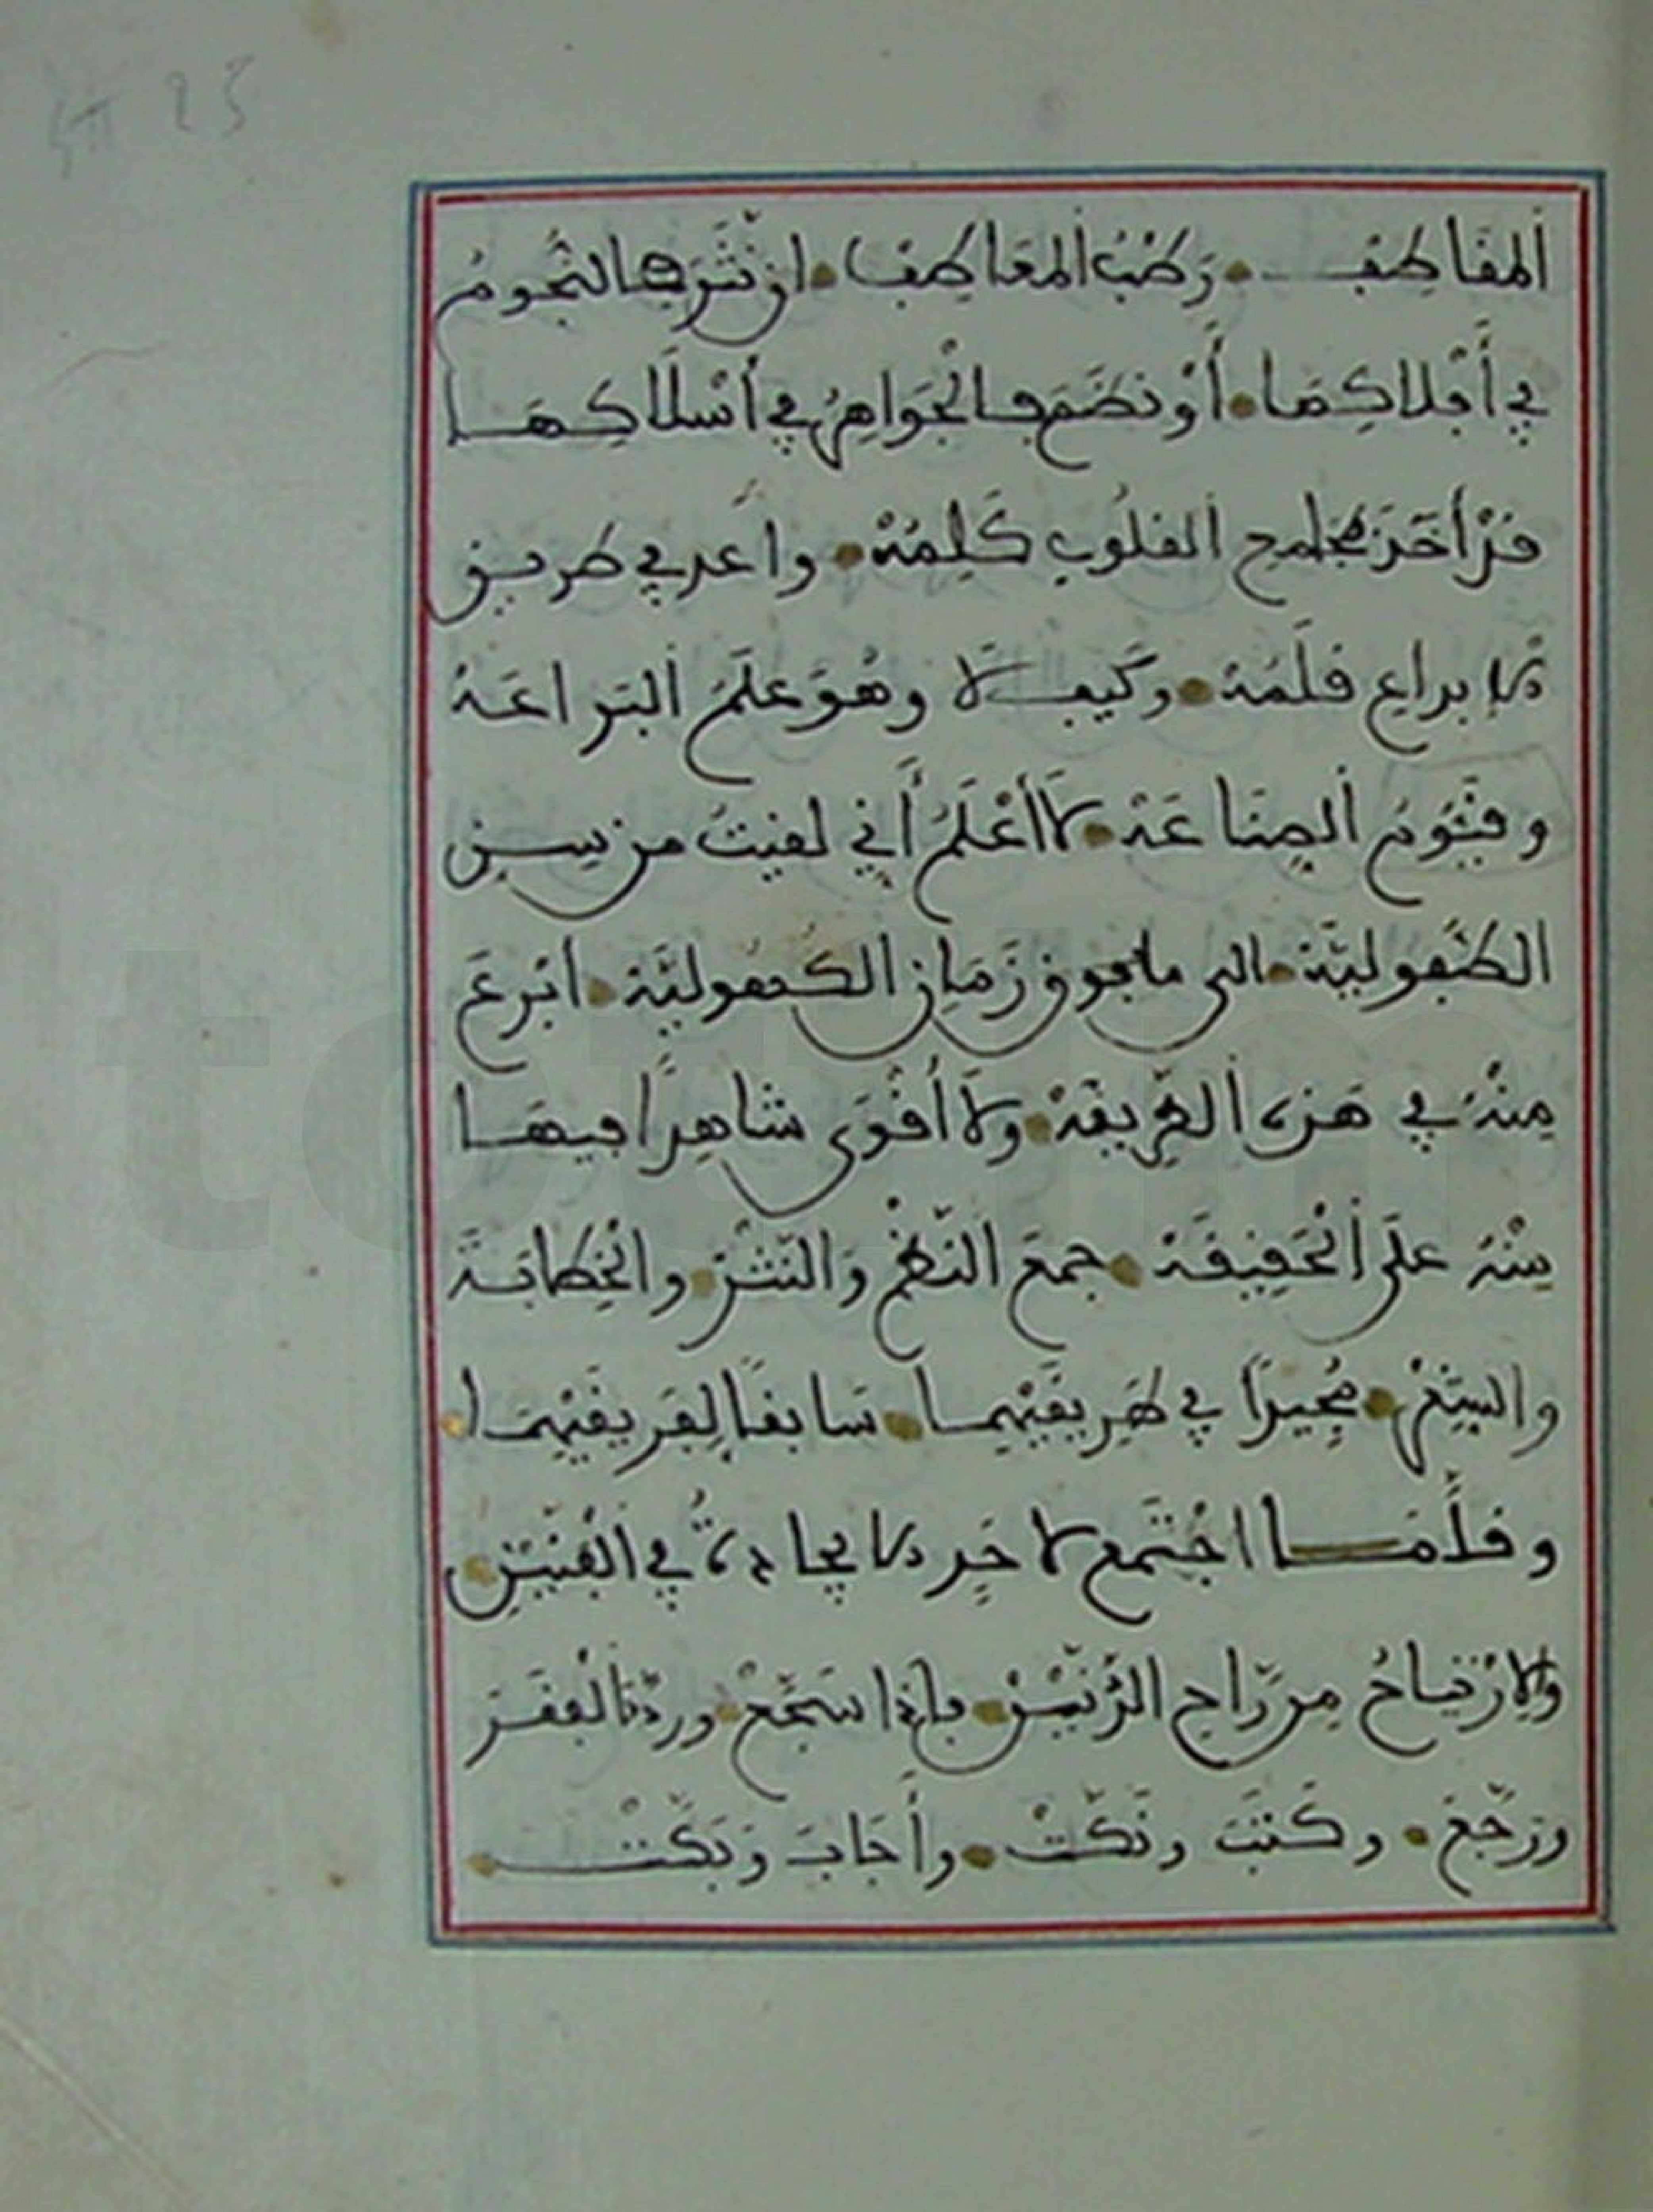 25
المقاطف وَرَطْبُ المَعَاطِف أو نَثَرتها النُّجومُ
في أَفْلاكِهَا أَوْ نظَمَها الجَوَاهِرُ في أَسْلَاكِهَا
قَدْ أَخَذَ بمجامع القلُوب كَلِمُهْ وأعد في طريق
براع قَلَمُهْ وكَيف لَا وهُوَ عَلَمُ البَراعَهْ
وقَيُّومُ الصِنَاعَهْ لَا أَعْلَمُ أَني لقيتُ من سِن
الطُفُوليَّهْ التي ما فوق زَمَان الكُهُوليَّهْ أَبْرعَ
مِنْهُ في هَذه الطَّرِيقَهْ ولَا أَقْوَى شَاهِدًا فيهَا
مِنْهُ عَلَى الحَقِيقَهْ جمعَ النَّظْمَ وَالنَّثْرْ والخِطَابَةَ
والشِّعْرْ مُجِيدًا في طَرِيقَيْهِمَا سَابقًا لِفَريقَيْهِمَا
وقلَّمَا اجْتَمع لأَحَدٍ الإجادةُ في الفَنَّيْنِ
والارْتيَاحُ مِن رَاحِ الدَّنَّيْنْ فإذا سَجَّعْ وردنا لفِقَرَ
ورَجَّعْ وكَتبَ ونَكَّتْ وأَجَابَ وَبَكَّتْ